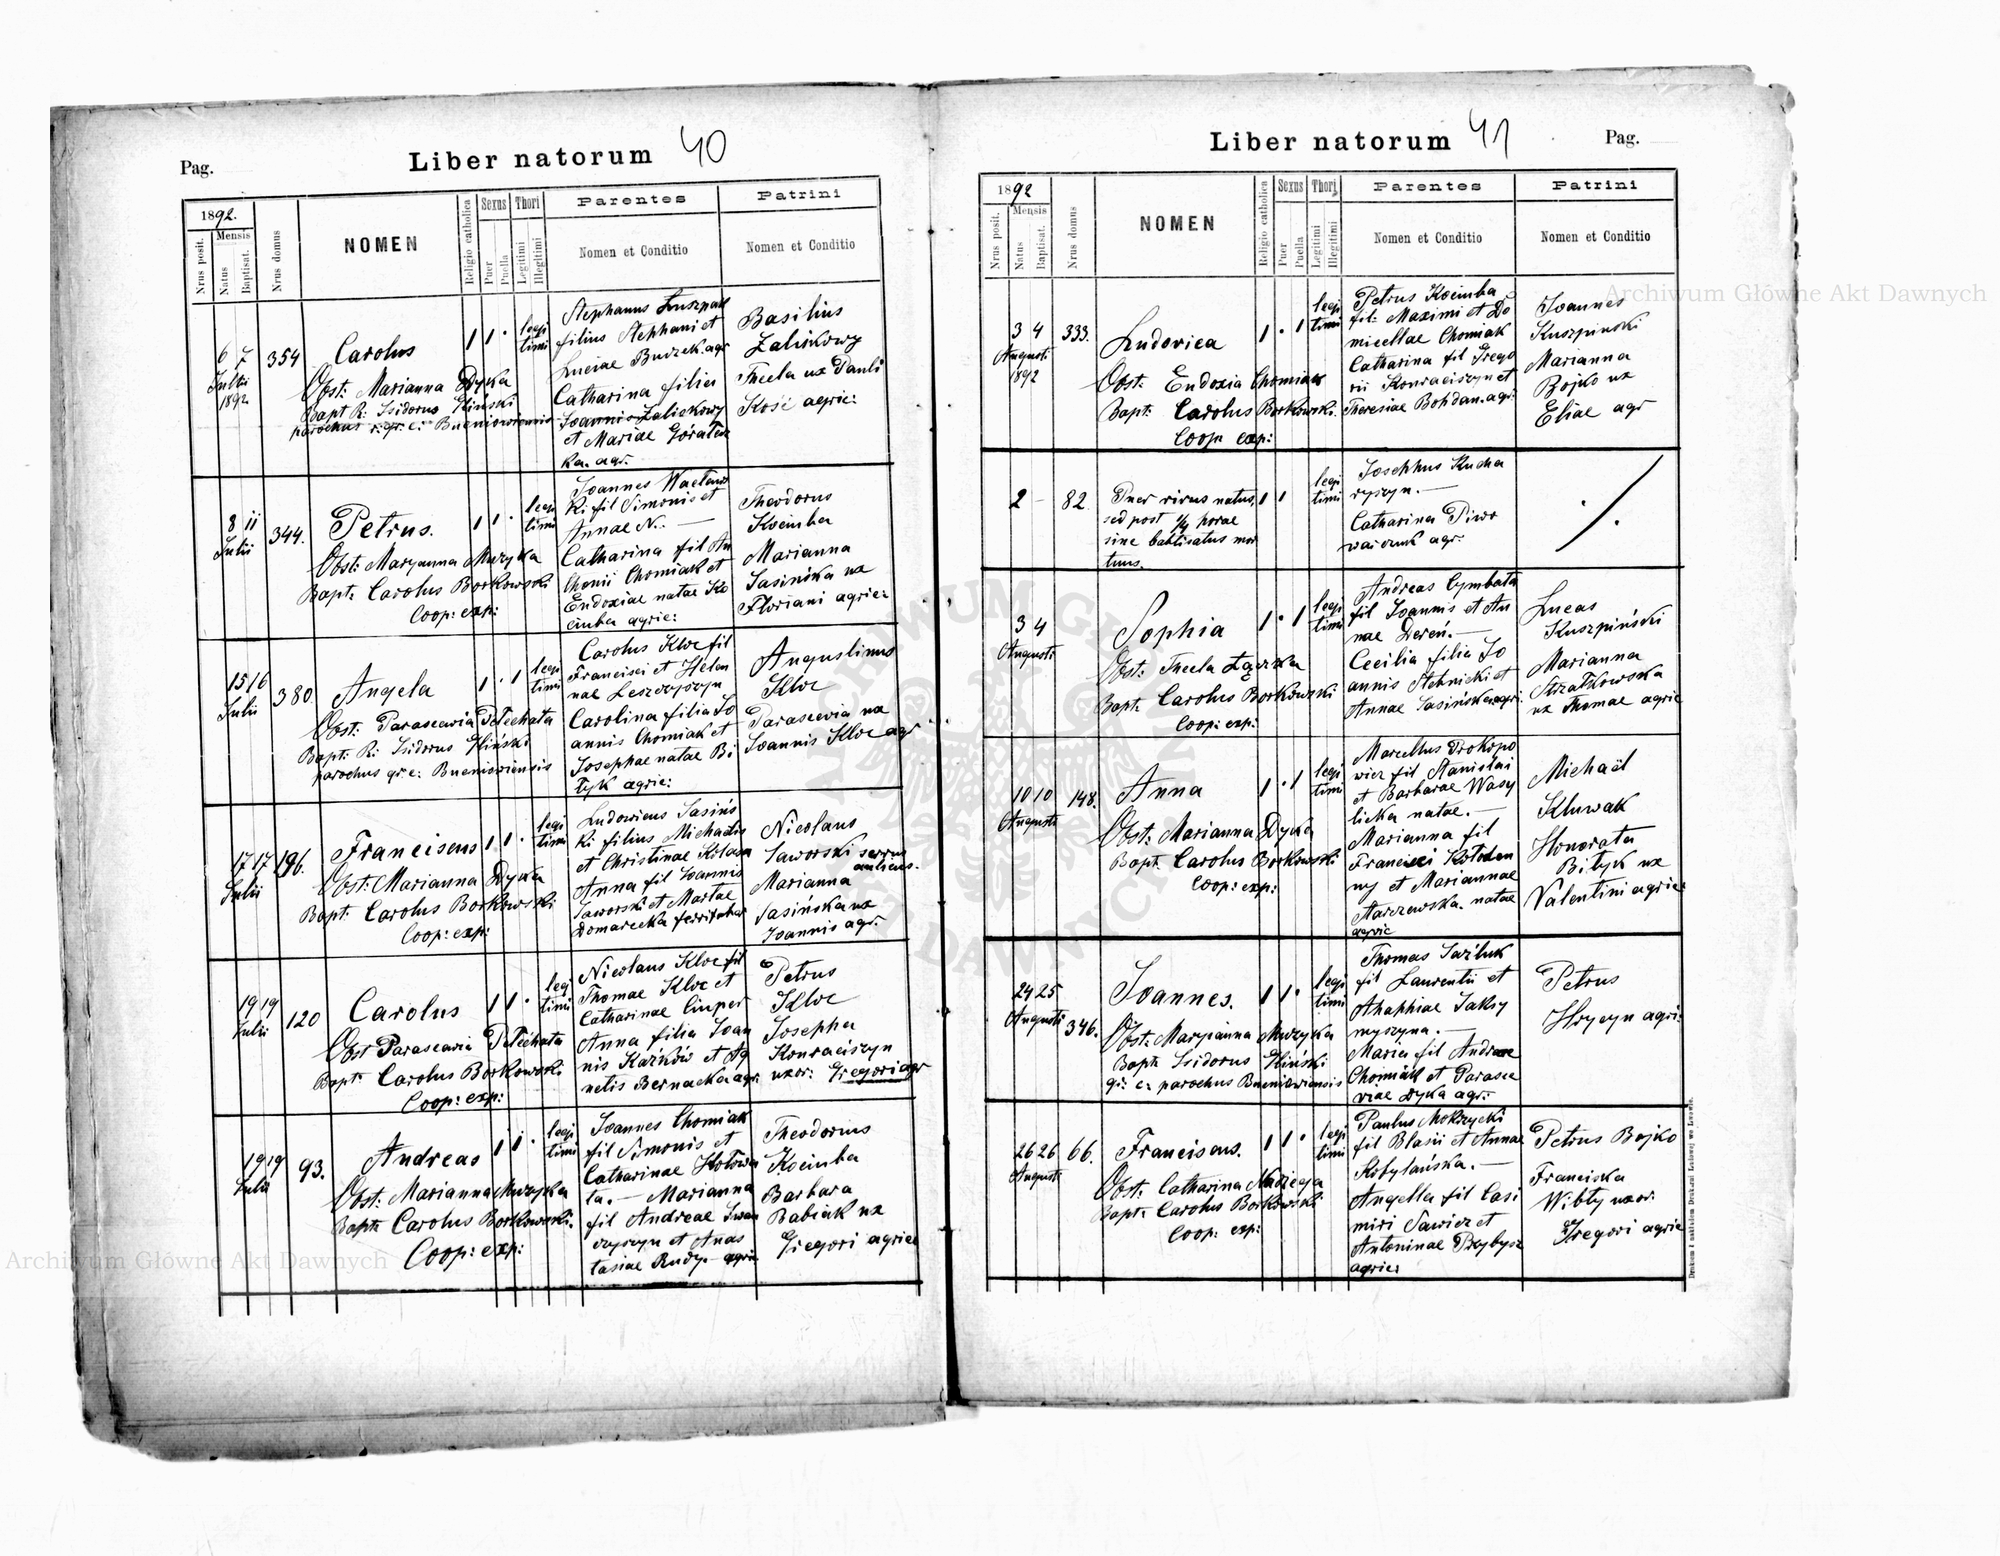 Pag.
Liber natorum 40
1892.
Nrus posit.
Mensis
Natus
Baptisat.
Nrus domus
NOMEN
Religio catholica
Sexus
Puer
Puella
Thori
Legitimi
Illegitimi
Parentes
Nomen et Conditio
Patrini
Nomen et Conditio
6 7
Julii
1892
354
Carolus
Obst: Marianna Dyka
Bapt R: Isidorus Gliński
parochus r. gr. c.: Bueniowiensis
1 1 ·
legi
timi
Stephanus Luszpak
filius Stephani et
Luciae Budzek. agr
Catharina filia
Joannis Zaliskowy
et Mariae Góralew
ka. agr.
Basilius
Zaliskowy
Thecla ux Pauli
Kość agric:
8 11
Julii
344.
Petrus.
Obst: Maryanna Muzyka
Bapt: Carolus Borkowski
Coop: exp:
1 1 ·
legi
timi
Joannes
Ki fil Simonis et
Annae N. —
Catharina fil An
Chomiak et
Eudoxiae natae Ko
ciuba agric:
Theodorus
Kociuba
Marianna
Sasińska ux
Floriani agric:
15 16
Julii
380.
Angela
Obst: Parascevia Pełechata
Bapt: R: Isidorus Gliński
parochus gr. c: Bueniowiensis
1 · 1
legi
timi
Carolus Kloc fil
Francisci et Helen
nae Leszczyszyn
Carolina filia Jo
annis Chomiak et
Josephae natae Bi
łyk agric:
Augustinus
Kloc
Parascevia ux
Joannis Kloc agr
17 17
Julii
196.
Franciscus
Obst: Marianna Dyka
Bapt: Carolus Borkowski
Coop: exp:
1 1 ·
legi
timi
Ludovicus Sasińs
ki filius Michaelis
et Christinae Kolasa
Anna fil Joannis
Jaworski et Martae
Domarecka
Nicolaus
Jaworski servus
aulicus.
Marianna
Sasińska ux
Joannis agr.
19 19
Julii
120
Carolus
Obst Parascevia Pełechata
Bapt: Carolus Borkowski
Coop: exp:
1 1 ·
legi
timi
Nicolaus Kloc fil
Thomae Kloc et
Catharinae Ciuper
Anna filia Joan
nis Kaźków et Ag
netis Bernacka agr.
Petrus
Kloc
Josepha
Konraciszyn
uxor: Gregori agr
19 19
Julii
93.
Andreas
Obst: Marianna Muzyka
Bapt: Carolus Borkowski.
Coop: exp:
1 1 ·
legi
timi
Joannes Chomiak
fil Simonis et
Catharinae Hołowa
ta. — Marianna
fil Andreae Iwan
czyszyn et Anas
tasiae Rudy. — agric
Theodorius
Kociuba
Barbara
Babiak ux
Gregori agric
Liber natorum 41
Pag.
1892
Nrus posit.
Mensis
Natus
Baptisat.
Nrus domus
NOMEN
Religio catholica
Sexus
Puer
Puella
Thori
Legitimi
Illegitimi
Parentes
Nomen et Conditio
Patrini
Nomen et Conditio
3 4
Augusti
1892
333.
Ludovica
Obst: Eudoxia Chomiak
Bapt: Carolus Borkowski.
Coop exp:
1 · 1
legi
timi
Petrus Kociuba
fil: Maximi et Do
micellae Chomiak
Catharina fil Grego
rii Konraciszyn et
Theresiae Bohdan. agr.
Joannes
Kuszpinski
Marianna
Bojko ux
Eliae agr
2 —
82.
Puer vivus natus,
sed post 1/4 horae
sine babtisatus mor
tuus.
1 1
legi
timi
Josephus Kucha
ryszyn. —
Catharina Piwo
warczuk agr.
3 4
Augusti
Sophia
Obst: Thecla Łączka
Bapt: Carolus Borkowski
Coop: exp:
1 · 1
legi
timi
Andreas Cymbała
fil Joannis et An
nae Dereń. —
Cecilia filia Jo
annis Stebnicki et
Annae Sasińska agri.
Lucas
Kuszpiński
Marianna
Strzałkowska
ux Thomae agric
10 10
Augusti
148.
Anna
Obst: Marianna Dyka
Bapt: Carolus Borkowski
Coop: exp:
1 · 1
legi
timi
Marcellus Prokopo
wicz fil Stanislai
et Barbarae Wasy
licka natae. —
Marianna fil
Francisci Kołodzn
ny et Mariannae
Starzewska. natae
agric
Michaël
Kluwak
Honorata
Biłyk ux
Valentini agric:
24 25
Augusti
346.
Joannes.
Obst: Maryianna Muzyka
Bapt: Isidorus Gliński
gr: c: parochus Bueniowiensis
1 1 ·
legi
timi
Thomas Jaźluk
fil Laurentii et
Ahaphiae Jaksy
myszyna. —
Maria fil Andreae
Chomiak et Parasce
viae Dyka agr.
Petrus
Hrycyn agri:
26 26
Augusti
66.
Franciscus.
Obst: Catharina Madziega
Bapt: Carolus Borkowski
Coop: exp:
1 1 ·
legi
timi
Paulus Mokrzycki
fil Blasii et Annae
Kobylańska. —
Angella fil Casi
miri Sawicz et
Antoninae Przybysz
agric:
Petrus Bojko
Franciska
Wibły uxor.
Gregori agric
Drukiem i nakładem Drukarni Ludowej we Lwowie.
Archiwum Główne Akt Dawnych
Archiwum Główne Akt Dawnych
ARCHIWUM GŁÓWNE AKT DAWNYCH